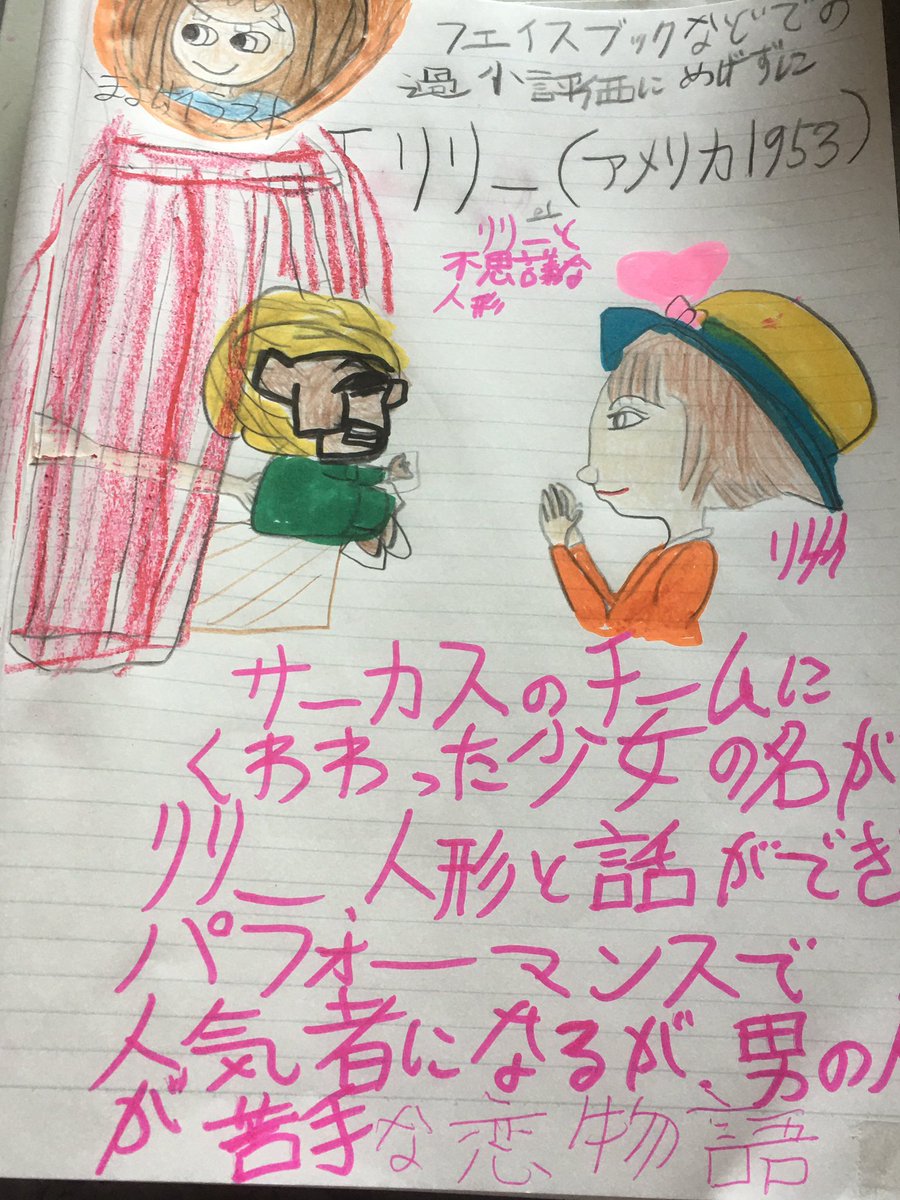 フェイスブックなどでの
過小評価にめげずに
まよしイラスト
「リリー(アメリカ1953)
or
リリーと
不思議な
人形
サーカスのチームに
くわわった少女の名が
リリー、人形と話ができ
パフォーマンスで
人気者になるが、男の人
が苦手な恋物語